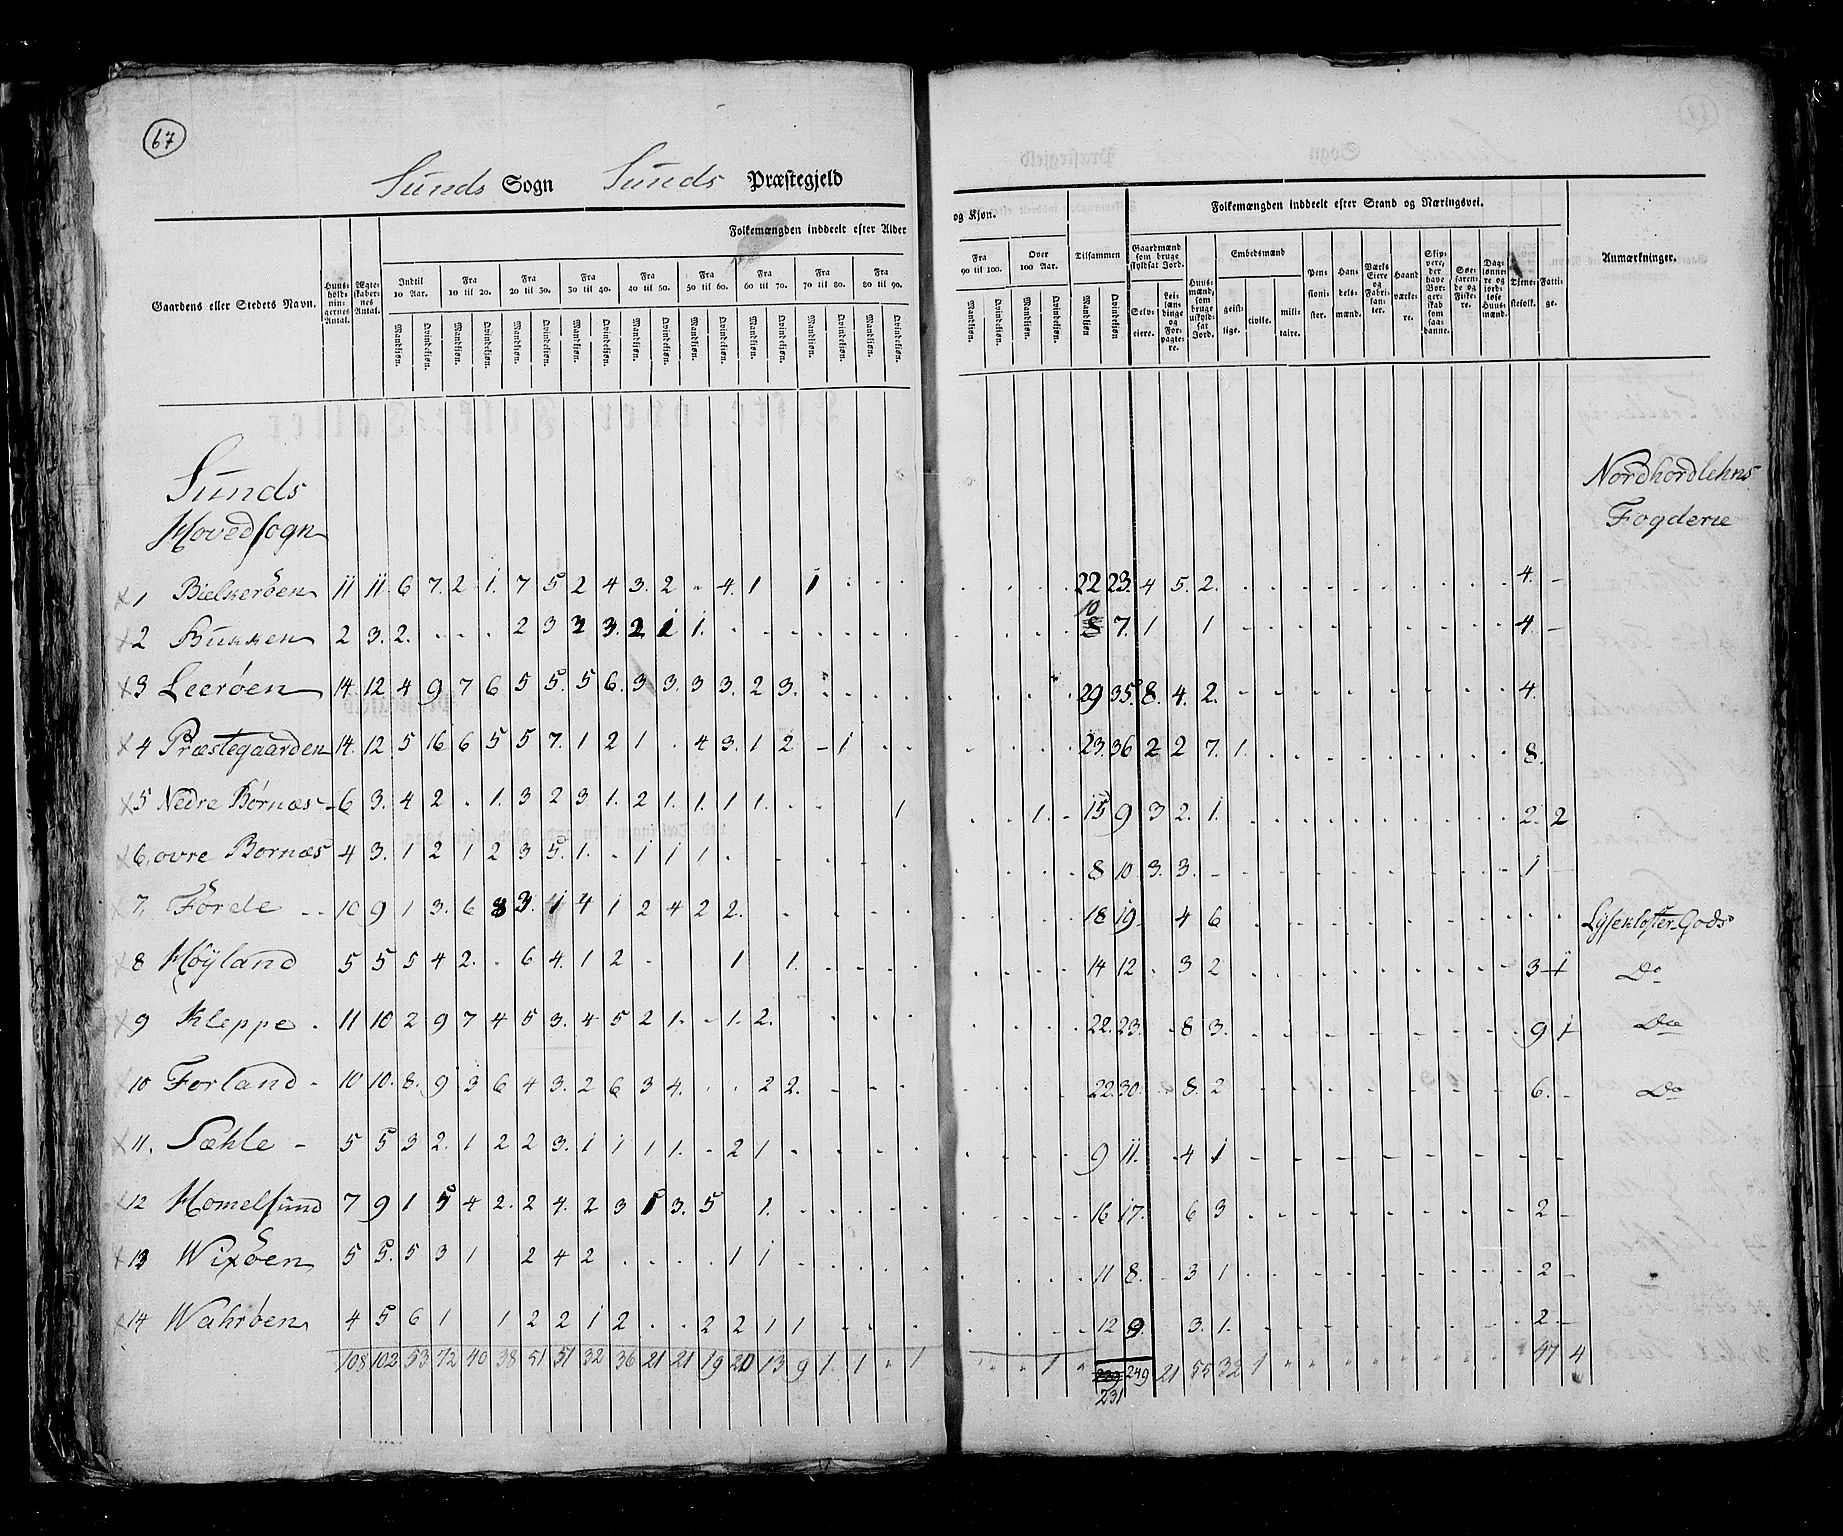 67
Sunds Sogn Sunds Præstegjeld
Gaardens eller Steders Navn.
Huus-holdnin-gernes Antal.
Ægte-skaber-nes Antal.
Folkemængden inddeelt efter Alder
og Kjøn.
Indtil 10 Aar.
Fra 10 til 20.
Fra 20 til 30.
Fra 30 til 40.
Fra 40 til 50.
Fra 50 til 60.
Fra 60 til 70.
Fra 70 til 80.
Fra 80 til 90.
Fra 90 til 100.
Over 100 Aar.
Mandkjøn. Qvindekjøn.
Tilsammen
Mandkjøn Qvindekjøn
Folkemængden inddeelt efter Stand og Næringsvei.
Gaardmænd som bruge skyldsat Jord.
Selv-eiere.
Lei-læn-dinge og For-pagte-re.
Huus-mænd, som bruge uskyld-sat Jord.
Embedsmænd
geist-lige.
civile.
mili-taire.
Pen-sioni-ster.
Han-dels-mænd.
Værks Eiere og Fabri-kan-ter.
Haand værke-re.
Skip-pere, der have Bor-ger-skab som saa-danne.
Søe-faren-de og Fiske-re.
Dag-lønne-re og jord-løse Huus-mænd.
Tjene-stefolk.
Fatti-ge.
Anmærkninger.
Sunds
Hovedsogn
Nordhordlehns
Fogderie
1 Bielkerøen 11 11 6 7 2 1 7 5 2 4 3 2 - 4 1 1 22 23 4 5 2 4 -
2 Bukken 2 3 2 . . . 2 3 3 3 2 1 1 10 8 7 1 1 4 -
3 Leerøen 14 12 4 9 7 6 5 5 5 6 3 3 3 3 2 3 29 35 8 4 2 4
4 Præstegaarden 14 12 5 16 6 5 5 7 1 2 1 . 4 3 1 2 - 1 23 36 2 2 7 1 8
5 Nedre Børnæs 6 3 4 2 . 1 3 2 3 1 2 1 1 1 1 1 1 15 9 3 2 1 2 2
6 ovre Bornæs 4 3 1 2 1 2 3 5 1 - 1 1 1 8 10 3 3 1
7 Førde 10 9 1 3 6 8 3 1 4 1 2 4 2 2 18 19 4 6 Lysekloster Gods
8 Høyland 5 5 5 4 2 . 6 4 1 2 1 1 14 12 3 2 3 1 Do
9 Kleppe 11 10 2 9 7 4 5 3 4 5 2 1 - 1 2 22 23 8 3 9 1 Do
10 Forland 10 10 8 9 3 6 4 3 2 6 3 4 . . 2 2 22 30 8 2 6 - Do
11 Sæhle 5 5 3 2 1 2 2 3 1 1 1 1 - 2 1 9 11 4 1
12 Homelsund 7 9 1 5 4 2 2 4 2 3 1 3 5 1 16 17 6 3 2 -
13 Wixøen 5 5 5 3 1 2 4 2 . . . . 1 1 11 8 3 1 2 -
14 Wahrøen 4 5 6 1 1 2 2 1 2 . . 2 2 1 1 12 9 3 1 2 -
108 102 53 72 40 38 51 51 32 36 21 21 19 20 13 9 1 1 " 1 " " 1 " 249 21 55 32 1 47 4
231